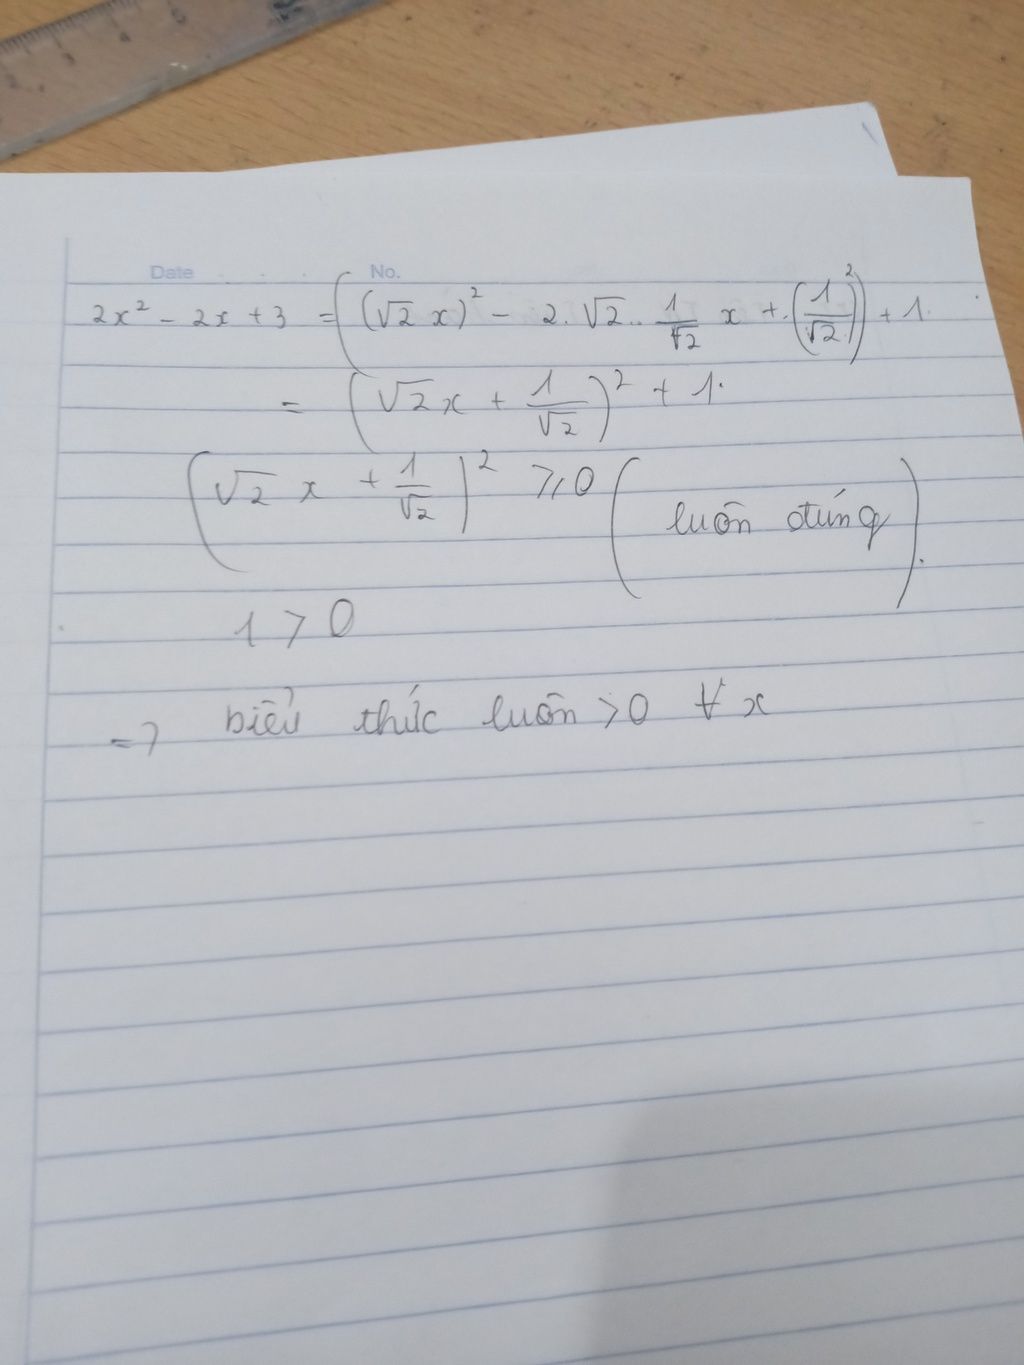 Date No.
2x² - 2x + 3 = ((√2 x)² - 2. √2.. 1/√2 x + .(1/√2)²) + 1.
= (√2x + 1/√2)² + 1.
(√2 x + 1/√2)² ⩾ 0 (luôn đúng).
1 > 0
=> biểu thức luôn > 0 ∀ x